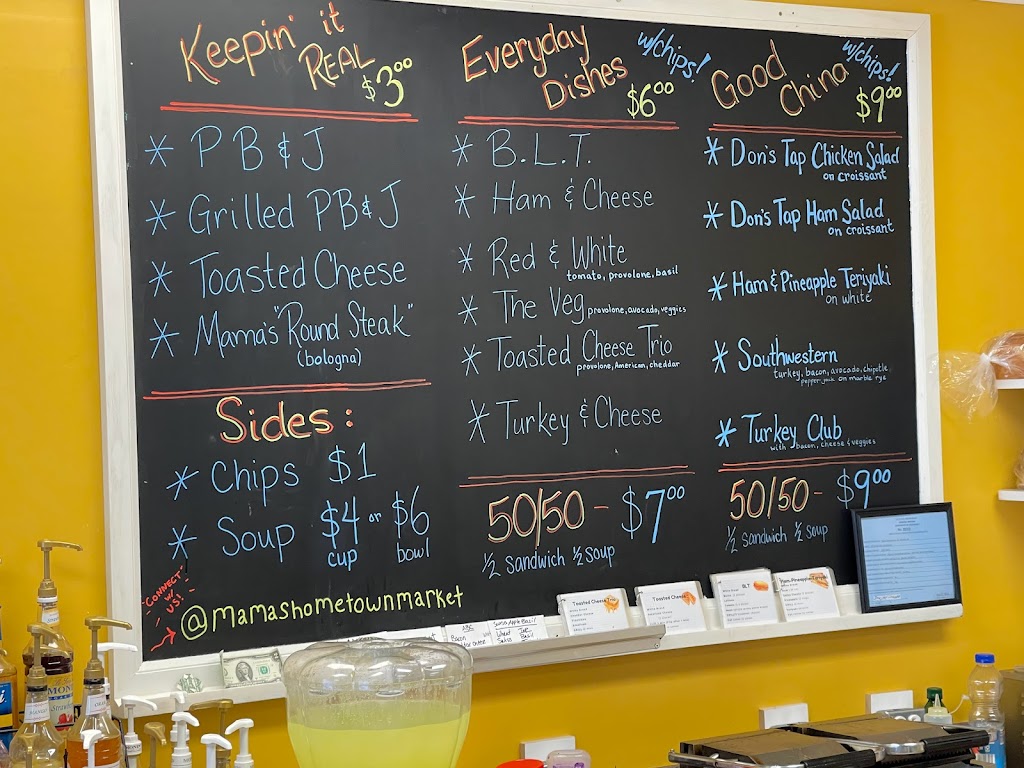 Keepin' it
REAL
$3.00
* PB & J
* Grilled PB & J
* Toasted Cheese
* Mama's "Round Steak"
(bologna)
Sides:
* Chips $1
* Soup $4 or $6
cup bowl
CONNECT
w/
US!
@mamashometownmarket
Everyday
Dishes
w/chips!
$6.00
* B.L.T.
* Ham & Cheese
* Red & White
tomato, provolone, basil
* The Veg provolone, avocado, veggies
* Toasted Cheese Trio
provolone, American, cheddar
* Turkey & Cheese
50/50 - $7.00
1/2 sandwich 1/2 soup
Good
China
w/chips!
$9.00
* Don's Tap Chicken Salad
on croissant
* Don's Tap Ham Salad
on croissant
* Ham & Pineapple Teriyaki
on white
* Southwestern
turkey, bacon, avocado, chipotle
pepper-jack on marble rye
* Turkey Club
with bacon, cheese & veggies
50/50 - $9.00
1/2 sandwich 1/2 soup
Toasted Cheese Trio
Toasted Cheese
BLT
Ham-Pineapple Teriyaki
ABC
Bacon